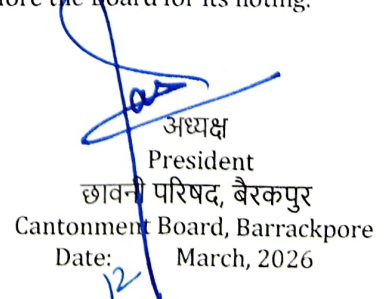 before the Board for its noting.
अध्यक्ष
President
छावनी परिषद, बैरकपुर
Cantonment Board, Barrackpore
Date: 12 March, 2026